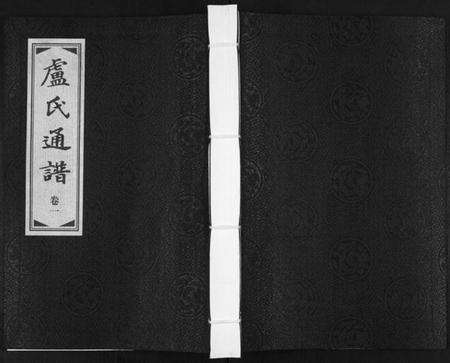 盧氏通譜
卷一